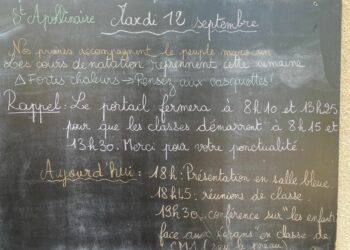 St Apollinaire Mardi 12 septembre
Nos prières accompagnent le peuple marocain
Les cours de natation reprennent cette semaine
△ Fortes chaleurs → Pensez aux casquettes !
Rappel : Le portail fermera à 8h10 et 13h25
pour que les classes démarrent à 8h15 et
13h30. Merci pour votre ponctualité.
Aujourd'hui : 18h : Présentation en salle bleue.
18h45 : réunions de classe.
19h30 : conférence sur "les enfants
face aux écrans" en classe de
CM1